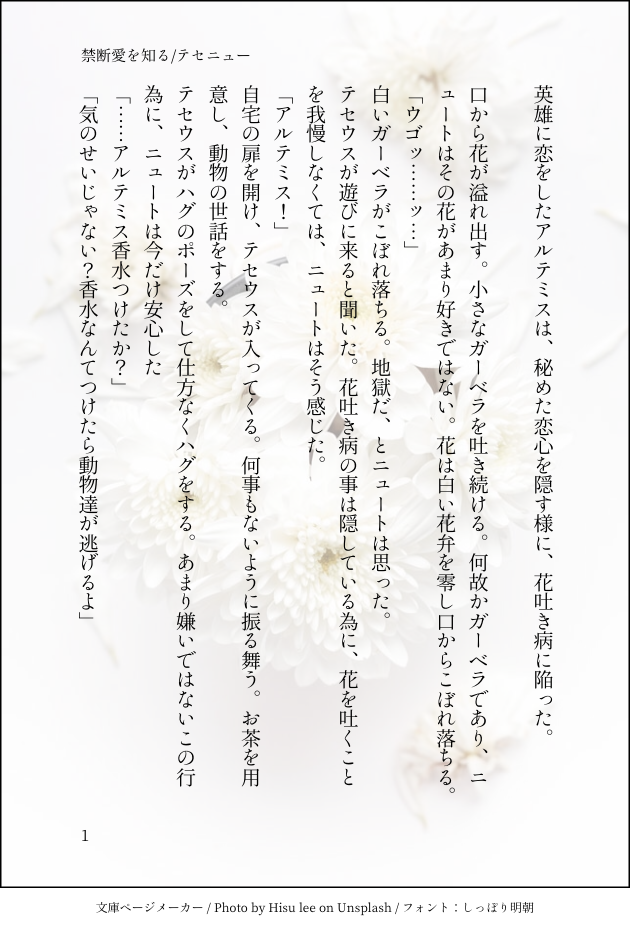 禁断愛を知る/テセニュー
英雄に恋をしたアルテミスは、秘めた恋心を隠す様に、花吐き病に陥った。
口から花が溢れ出す。小さなガーベラを吐き続ける。何故かガーベラであり、ニ
ュートはその花があまり好きではない。花は白い花弁を零し口からこぼれ落ちる。
「ウゴッ……ッ…」
白いガーベラがこぼれ落ちる。地獄だ、とニュートは思った。
テセウスが遊びに来ると聞いた。花吐き病の事は隠している為に、花を吐くこと
を我慢しなくては、ニュートはそう感じた。
「アルテミス！」
自宅の扉を開け、テセウスが入ってくる。何事もないように振る舞う。お茶を用
意し、動物の世話をする。
テセウスがハグのポーズをして仕方なくハグをする。あまり嫌いではないこの行
為に、ニュートは今だけ安心した
「……アルテミス香水つけたか？」
「気のせいじゃない？香水なんてつけたら動物達が逃げるよ」
1
文庫ページメーカー / Photo by Hisu lee on Unsplash / フォント：しっぽり明朝